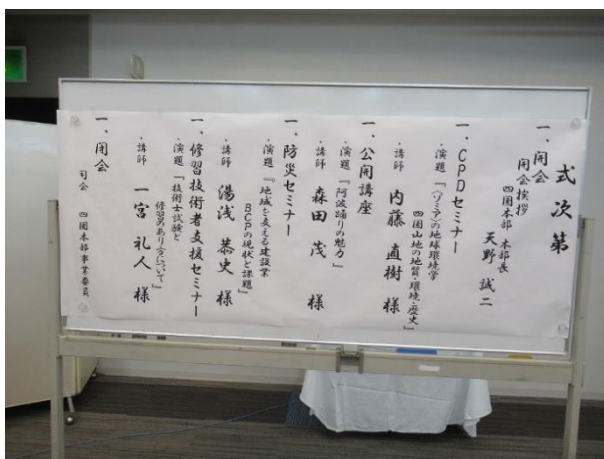 式次第
一、開会
開会挨拶
四国本部 本部長
天野 誠二
一、CPDセミナー
・演題『〈ゾミア〉の地球環境学
四国山地の地質・環境・歴史』
・講師 内藤 直樹 様
一、公開講座
・演題『阿波踊りの魅力』
・講師 森田 茂 様
一、防災セミナー
・演題『地域を支える建設業
BCPの現状と課題』
・講師 湯浅 恭史 様
一、修習技術者支援セミナー
・演題『技術士試験と
修習のあり方について』
・講師 一宮 礼人 様
一、閉会
司会 四国本部事業委員